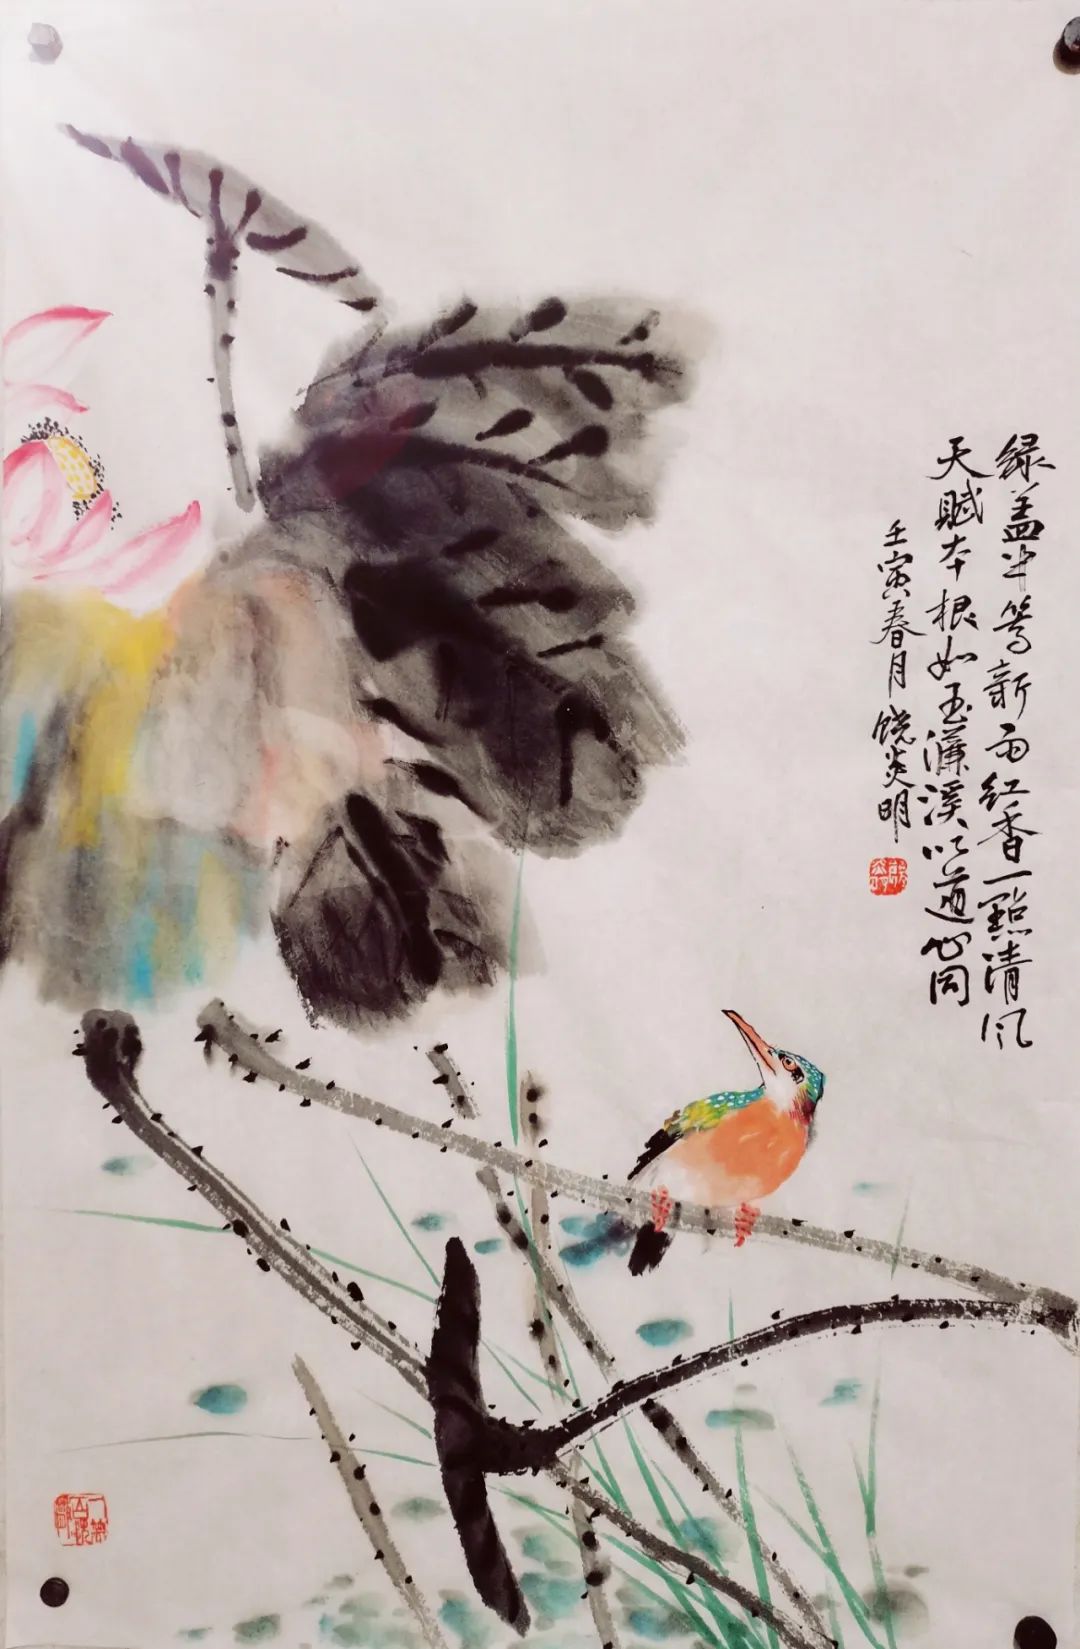 绿盖半篙新雨红香一點清风
天赋本根如玉濂溪以道心同
壬寅春月 饶炎明